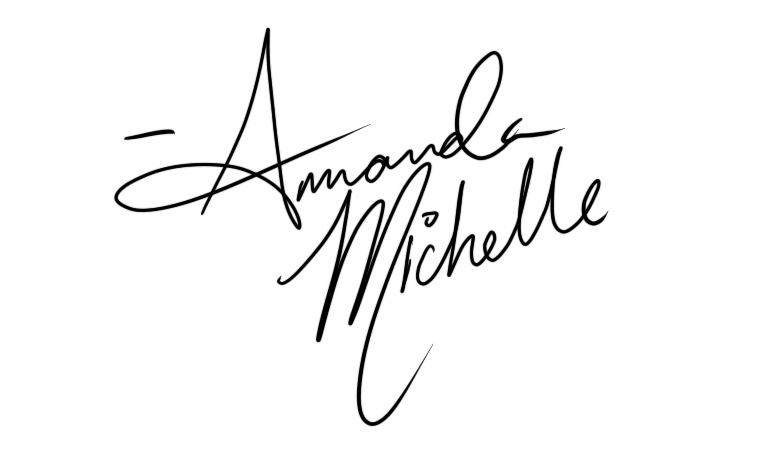 - Amanda
Michelle